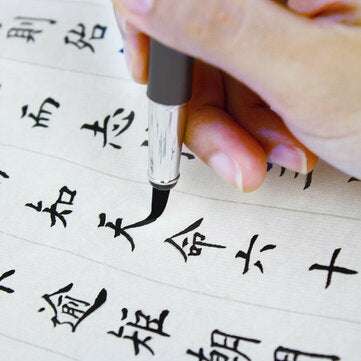 則殆
而志三
知天命六十
逾矩朝